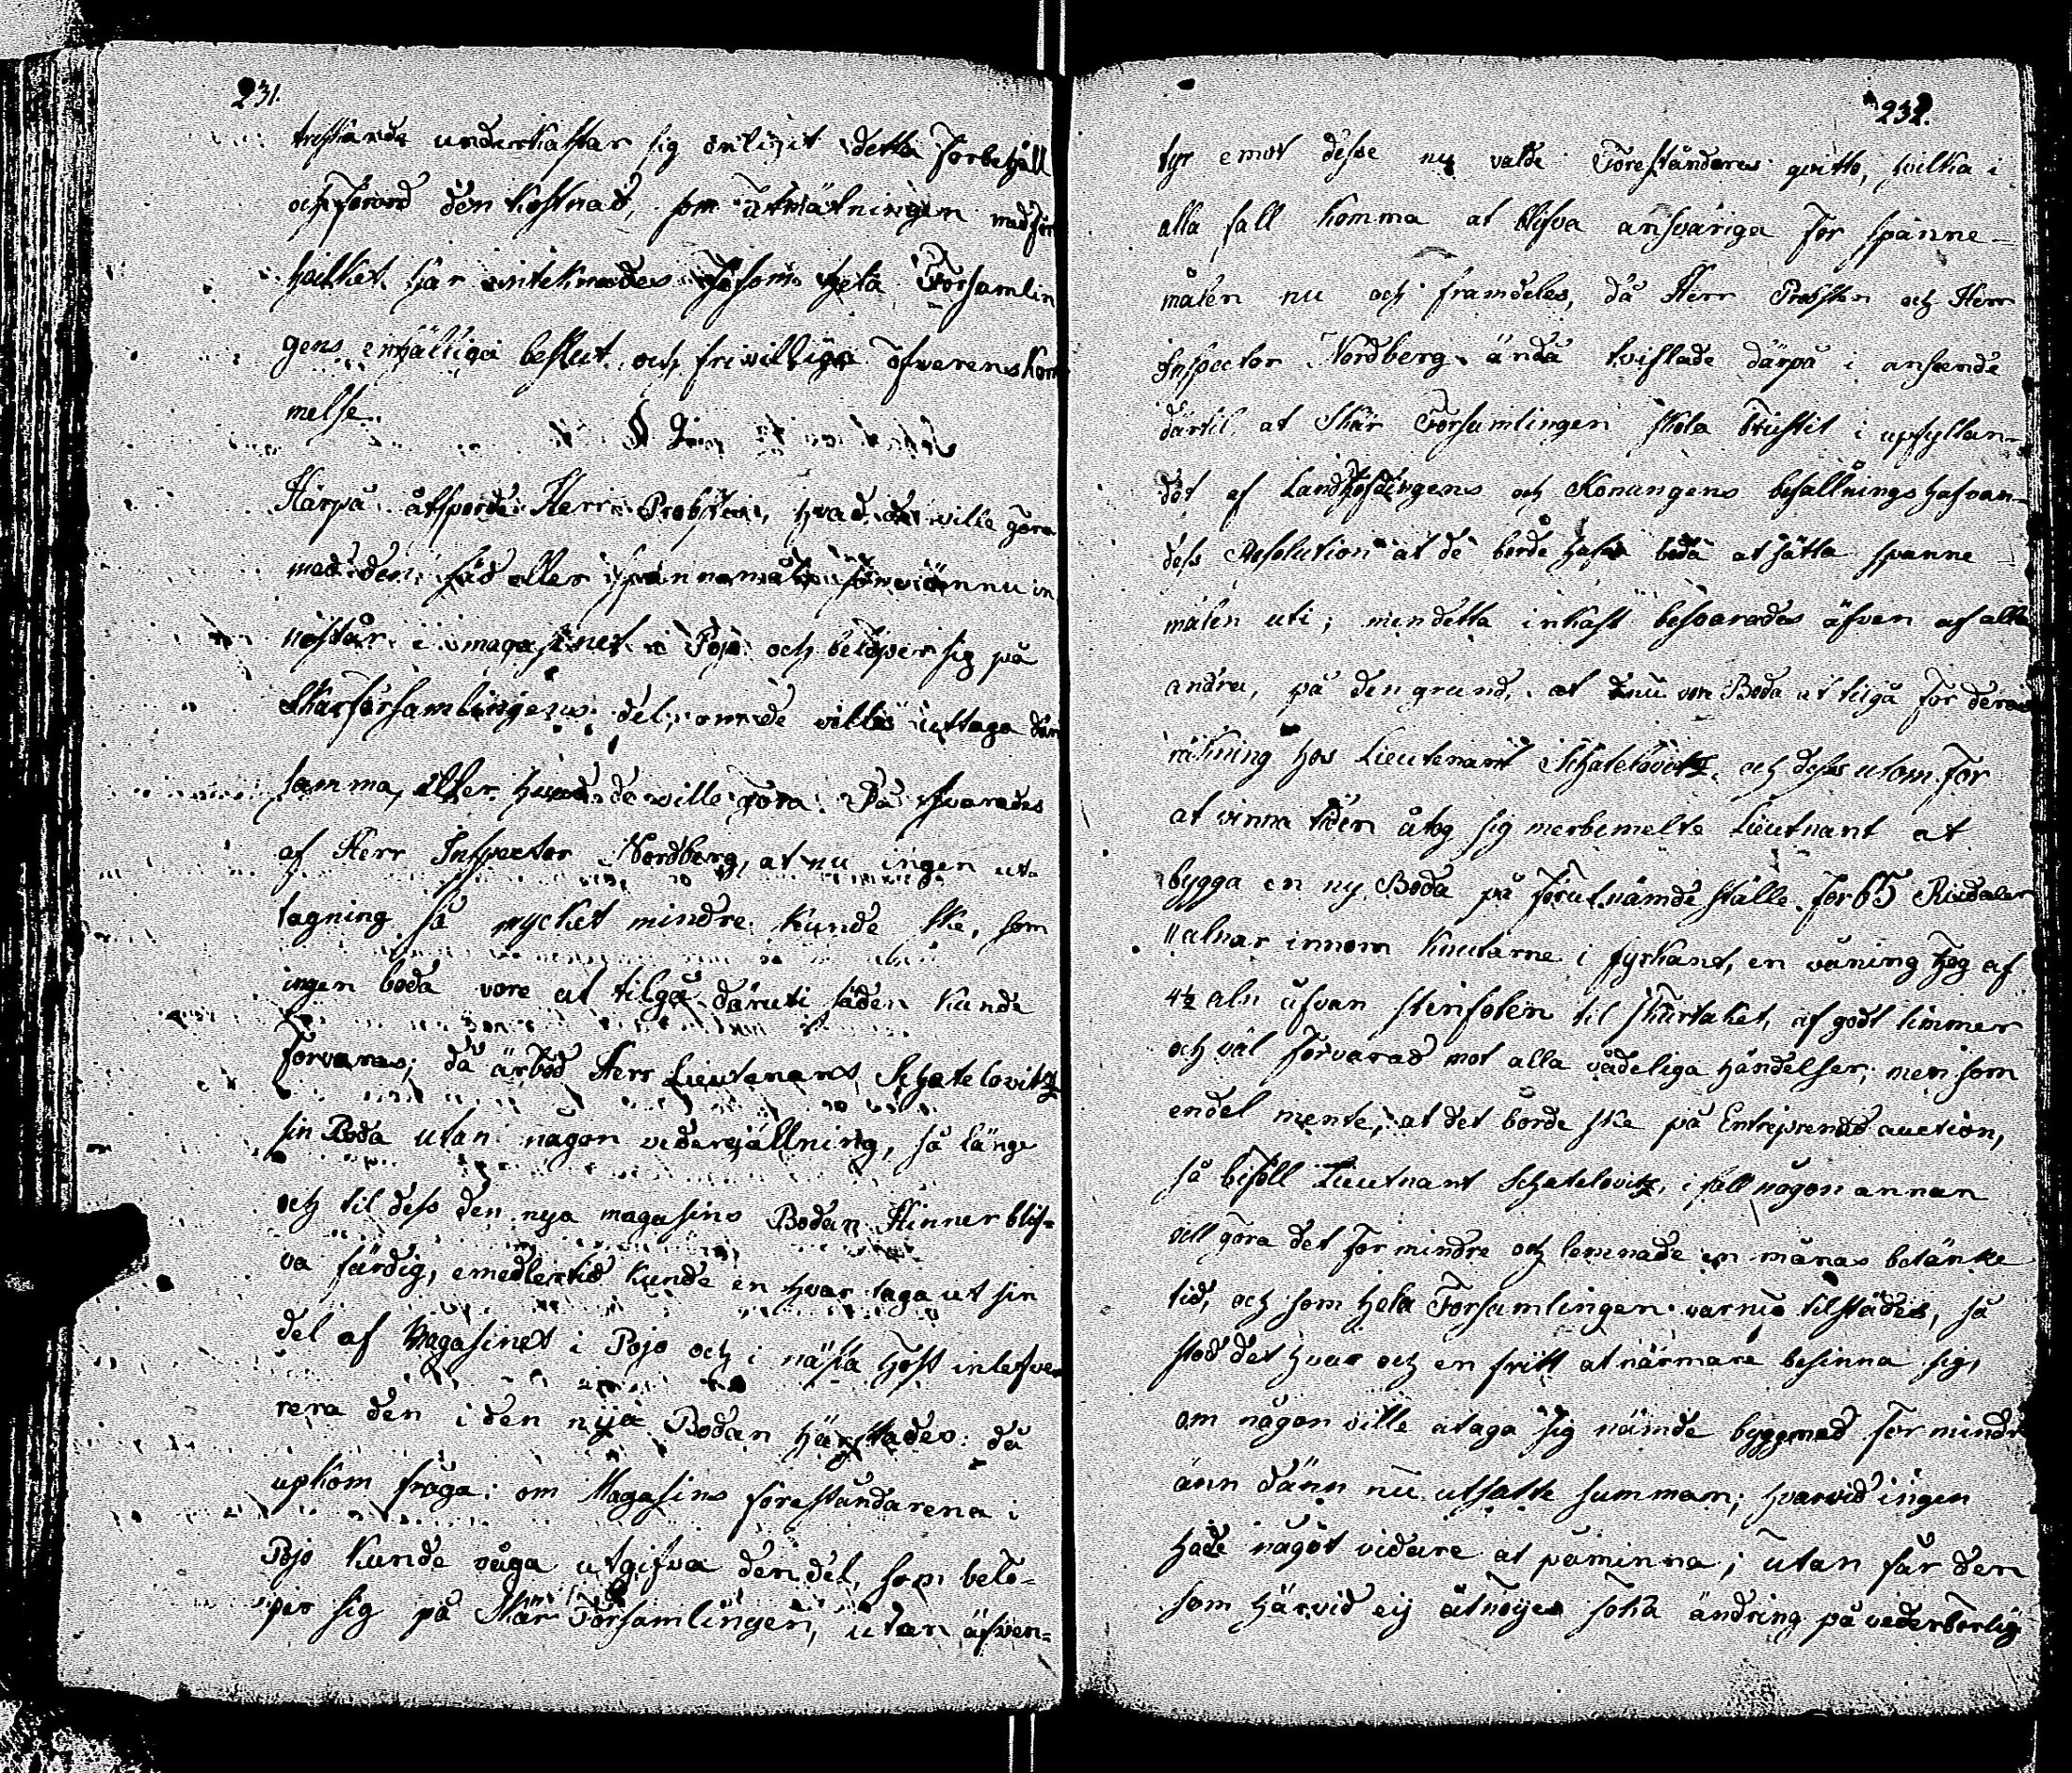 231.
tresskande underkastar sig enligit detta Forbehåll
och forord den kostnad, som utmätningen medför
hvilket här intecknades såsom hela Forsamlin
gens enhälliga beslut och friwilliga öfwerenskom
melse.
§ 2.
Härpå åtsporde Herr Probsten, hvad de ville göra
med den säd eller spannemål som ännu in
nestår i magasinet i Pojo och beloper sig på
Skärforsamlingens del, om de ville uttaga den
samma, eller hvad de ville göra. Då svarades
af Herr Inspector Nordberg, at nu ingen ut-
tagning så mycket mindre kunde ske, som
ingen boda vore at tilgå däruti säden kunde
förvaras; då ärbod Herr Lieutenant Schatelovitz
sin Boda utan någon vedergjällning, så länge
och til dess den nya magasins Bodan hinner blif-
va färdig, emedlertid kunde en hvar taga ut sin
del af Magasinet i Pojo och i nästa höst inlefve
rera den i den nya Bodan härstädes. då
upkom fråga: om Magasins forestandarena i
Pojo kunde våga utgifva den del, som belö-
per sig på Skär Forsamlingen, utan äfven-
232.
tyr emot desse ny valde Foreståndares qvitto, hvilka i
alla fall komma at blifva ansvariga for spanne-
målen nu och framdeles, då Herr Probsten och Herr
Inspector Nordberg ändå tviflade därpå i anseende
därtil at Skär Forsamlingen skola brustit i upfyllan-
det af Landshofdingens och Konungens befallningshafvan-
dess Resolution at de borde hafva boda at sätta spanne-
målen uti; men detta inkast besvarades äfven af alla
andra, på den grund, at nu vore Boda at tilgå for deras
räkning hos Lieutenant Schatelovitz, och dessutom for
at vinna tiden åtog sig merbemelte Lieutnant at
bygga en ny Boda på forutnämde ställe for 65 Riksdaler
11 alnar innom knutarne i fyrkant, en våning hög af
4½ aln ofvan stenfoten til skurtaket, af godt timmer
och väl forvarad mot alla vådeliga händelser; men som
en del mente, at det borde ske på Entreprenad auction,
så biföll Lieutnant Schatelovitz, i fall någon annan
vill göra det for mindre och lemnade en månas betänke
tid, och som hela Forsamlingen var nu tilstädes, så
stod det hvar och en fritt at närmare besinna sig,
om någon ville åtaga sig nämde byggnad for mindre
änn dänn nu utsatte summan; hvarvid ingen
hade något vidare at påminna; utan får den
som härvid ej åtnöjes soka ändring på vederborlig